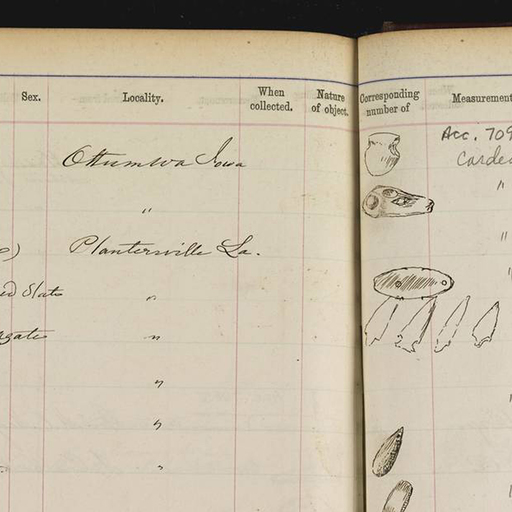 Sex. Locality. When collected. Nature of object. Corresponding number of Measurement
Acc. 709
Ottumwa Iowa Carded
" "
Planterville La. "
ed Slate " "
agate "
" "
"
"
"